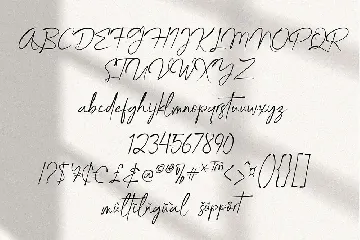 ABCDEFGHIJKLMNOPQR
STUVWXYZ
abcdefghijklmnopqrstuvwxyz
1234567890
!?$¥₡£&@©®%#*™<>^()[]
mûltilñgüâl süppört